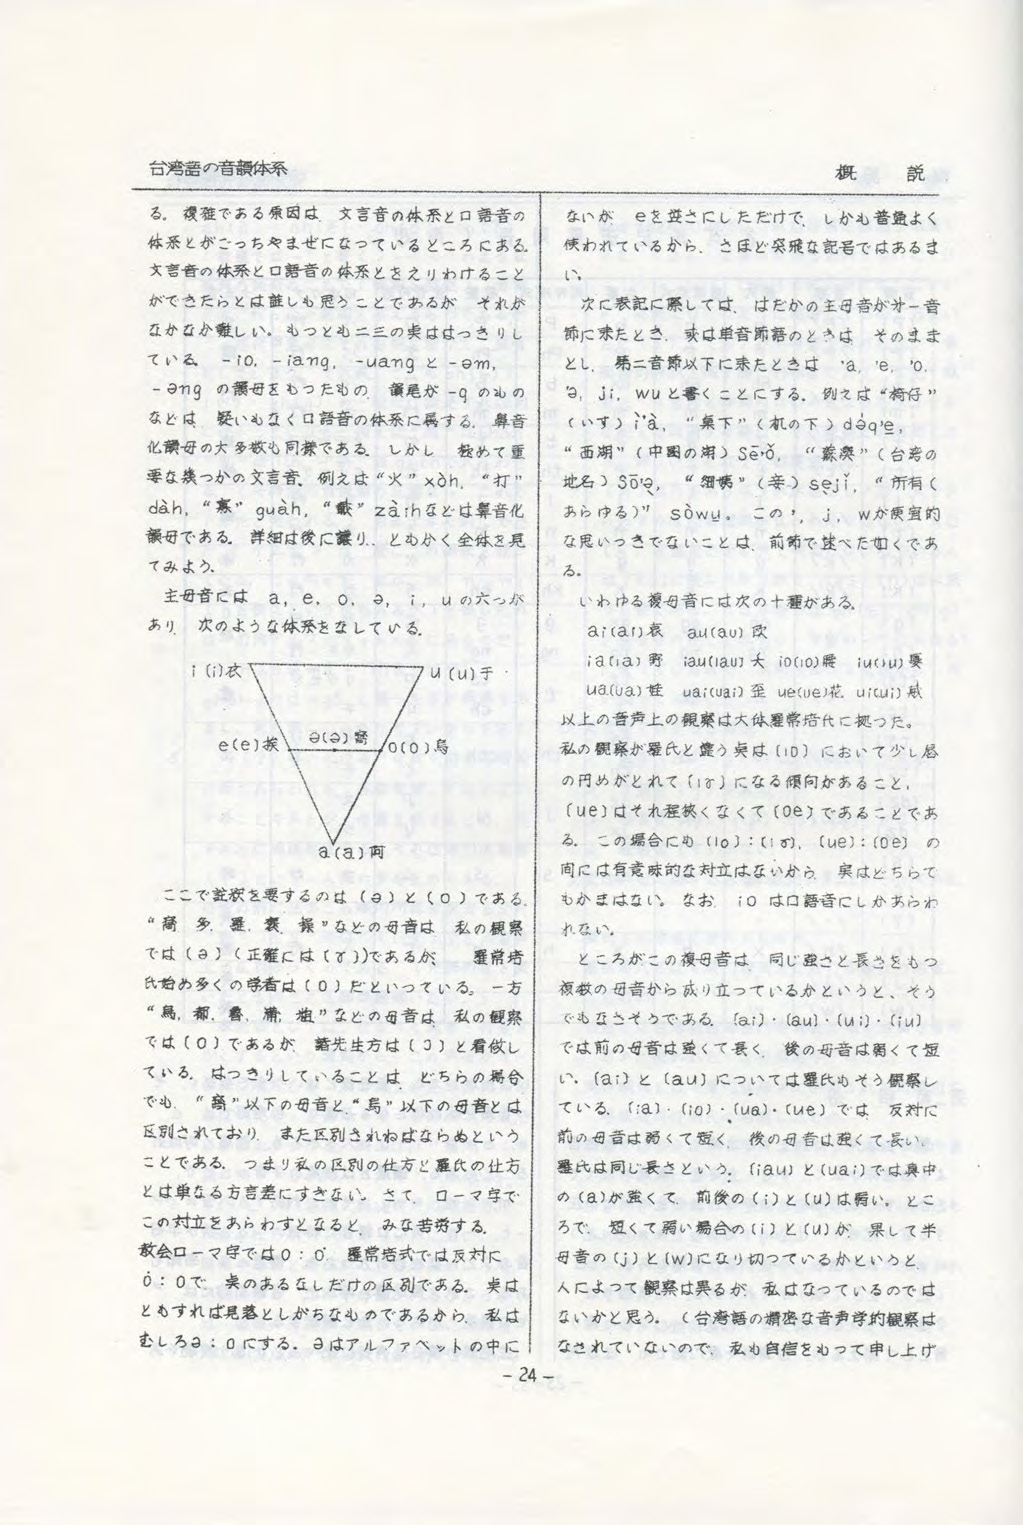 台湾語の音韻体系
概　説
る。複雑である原因は、文言音の体系と口語音の
体系とがごっちゃまぜになっているところにある。
文言音の体系と口語音の体系とをえりわけること
ができたらとは誰しも思うことであるが、それが
なかなか難しい。もっとも二三の点ははっきりし
ている。-io, -iang, -uang と -əm,
-əng の韻母をもったもの、韻尾が -q のもの
などは、疑いもなく口語音の体系に属する。鼻音
化韻母の大多数も同様である。しかし、極めて重
要な幾つかの文言音、例えば“火” xòh, “打”
dàh, “寡” guàh, “ ” zàihなどは鼻音化
韻母である。詳細は後に譲り、ともかく全体を見
てみよう。
主母音には a, e, o, ə, i, u の六つが
あり、次のような体系をなしている。
i (i)衣
u (u)于
e(e)挨
ə(ə)窩
o(o)烏
a(a)阿
ここで説明を要するのは(ə)と(o)である。
“窩、多、羅、褒、操”などの母音は、私の観察
では(ə)(正確には(ɤ))であるが、羅常培
氏始め多くの学者は(o)だといっている。一方
“烏、都、魯、 、祖”などの母音は、私の観察
では(o)であるが、諸先生方は(ɔ)と看做し
ている。はっきりしていることは、どちらの場合
でも、“窩”以下の母音と“烏”以下の母音とは
区別されており、また区別されねばならぬという
ことである。つまり私の区別の仕方と羅氏の仕方
とは単なる方言差にすぎない。さて、ローマ字で
この対立をあらわすとなると、みな苦労する。
教会ローマ字ではo : o͘, 羅常培式では反対に
o͘ : oで、点のあるなしだけの区別である。点は
ともすれば見落としがちなものであるから、私は
むしろə : oにする。əはアルファベットの中に
ないが、eを逆さにしただけで、しかも普通よく
使われているから、さほど突飛な記号ではあるま
い。
次に表記に際しては、はだかの主母音がオ一音
節に来たとき、或は単音節語のときは、そのまま
とし、第二音節以下に来たときは 'a, 'e, 'o,
'ə, ji, wuと書くことにする。例えば“椅仔”
(いす) i'à, “桌下”(机の下) dəq'e,
“西湖”(中国の湖) Sē'ŏ, “蘇澳”(台湾の
地名) Sō'ə, “細姨”(妾) seji, “所有(
あらゆる)” sòwu。この', j, wが便宜的
な思いつきでないことは、前節で述べた如くであ
る。
いわゆる複母音には次の十種がある。
ai(ai)哀 au(au)欧
ia(ia)野 iau(iau)夭 io(io)腰 iu(iu)優
ua(ua)娃 uai(uai)歪 ue(ue)花 ui(ui)威
以上の音声上の観察は大体羅常培氏に拠った。
私の観察が羅氏と違う点は(io)において少し唇
の円めがとれて(iɤ)になる傾向があること、
(ue)はそれ程狭くなくて(oe)であることであ
る。この場合にも(io):(iɤ), (ue):(oe) の
間には有意味的な対立はないから、実はどちらで
もかまはない。なお、io は口語音にしかあらわ
れない。
ところがこの複母音は、同じ強さと長さをもつ
複数の母音から成り立っているかというと、そう
でもなさそうである。(ai)・(au)・(ui)・(iu)
では前の母音は強くて長く、後の母音は弱くて短
い。(ai)と(au)については羅氏もそう観察し
ている。(ia)・(io)・(ua)・(ue)では、反対に
前の母音は弱くて短く、後の母音は強くて長い。
羅氏は同じ長さという。(iau)と(uai)では真中
の(a)が強くて、前後の(i)と(u)は弱い。とこ
ろで、短くて弱い場合の(i)と(u)が、果して半
母音の(j)と(w)になり切っているかというと、
人によって観察は異るが、私はなっているのでは
ないかと思う。(台湾語の精密な音声学的観察は
なされていないので、私も自信をもって申し上げ
- 24 -